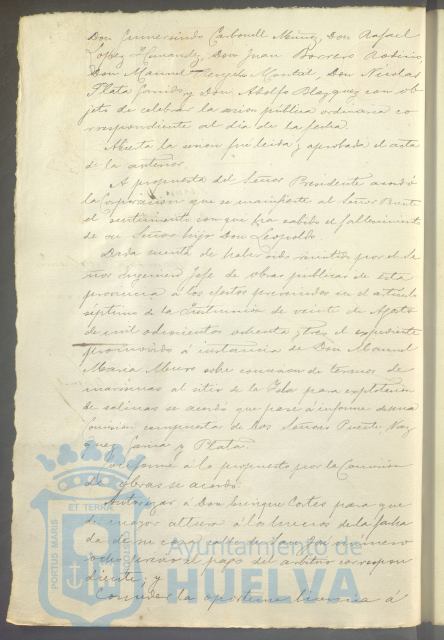 Don Gumersindo Carbonell Muñoz, Don Rafael
Lopez Hernandez, Don Juan Borrero
Don Manuel Montal, Don Nicolas
Plata Garrido, y Don Adolfo Blazquez con ob
jeto de celebrar la sesion pública ordinaria co
rrespondiente al dia de la fecha.
Abierta la sesion fué leida y aprobada el acta
de la anterior.
A propuesta del Señor Presidente acordó
la Corporacion que se manifieste al Señor Puente
el sentimiento con que ha sabido el fallecimiento
de su Señor hijo Don Leopoldo.
Dada cuenta de haber sido remitido por el Se
ñor Ingeniero Jefe de obras públicas de esta
provincia á los efectos prevenidos en el artículo
séptimo de la Instruccion de veinte de Agosto
de mil ochocientos ochenta y tres el espediente
promovido á instancia de Don Manuel
Maria Mucro sobre concesion de terrenos de
marismas al sitio de la Isla para esplotacion
de salinas se acordó que pase á informe de una
Comision compuesta de los Señores Puente, Vaz
quez, Garcia y Plata.
Conforme á lo propuesto por la Comision
de obras se acordó:
Autorizar á Don Enrique Cortés para que
dé mayor altura á la de la facha
da de su casa calle de San José número
previo el pago del arbitrio correspon
diente; y
Conceder la oportuna licencia á
PORTUS MARIS
ET TERRÆ
Ayuntamiento de
HUELVA